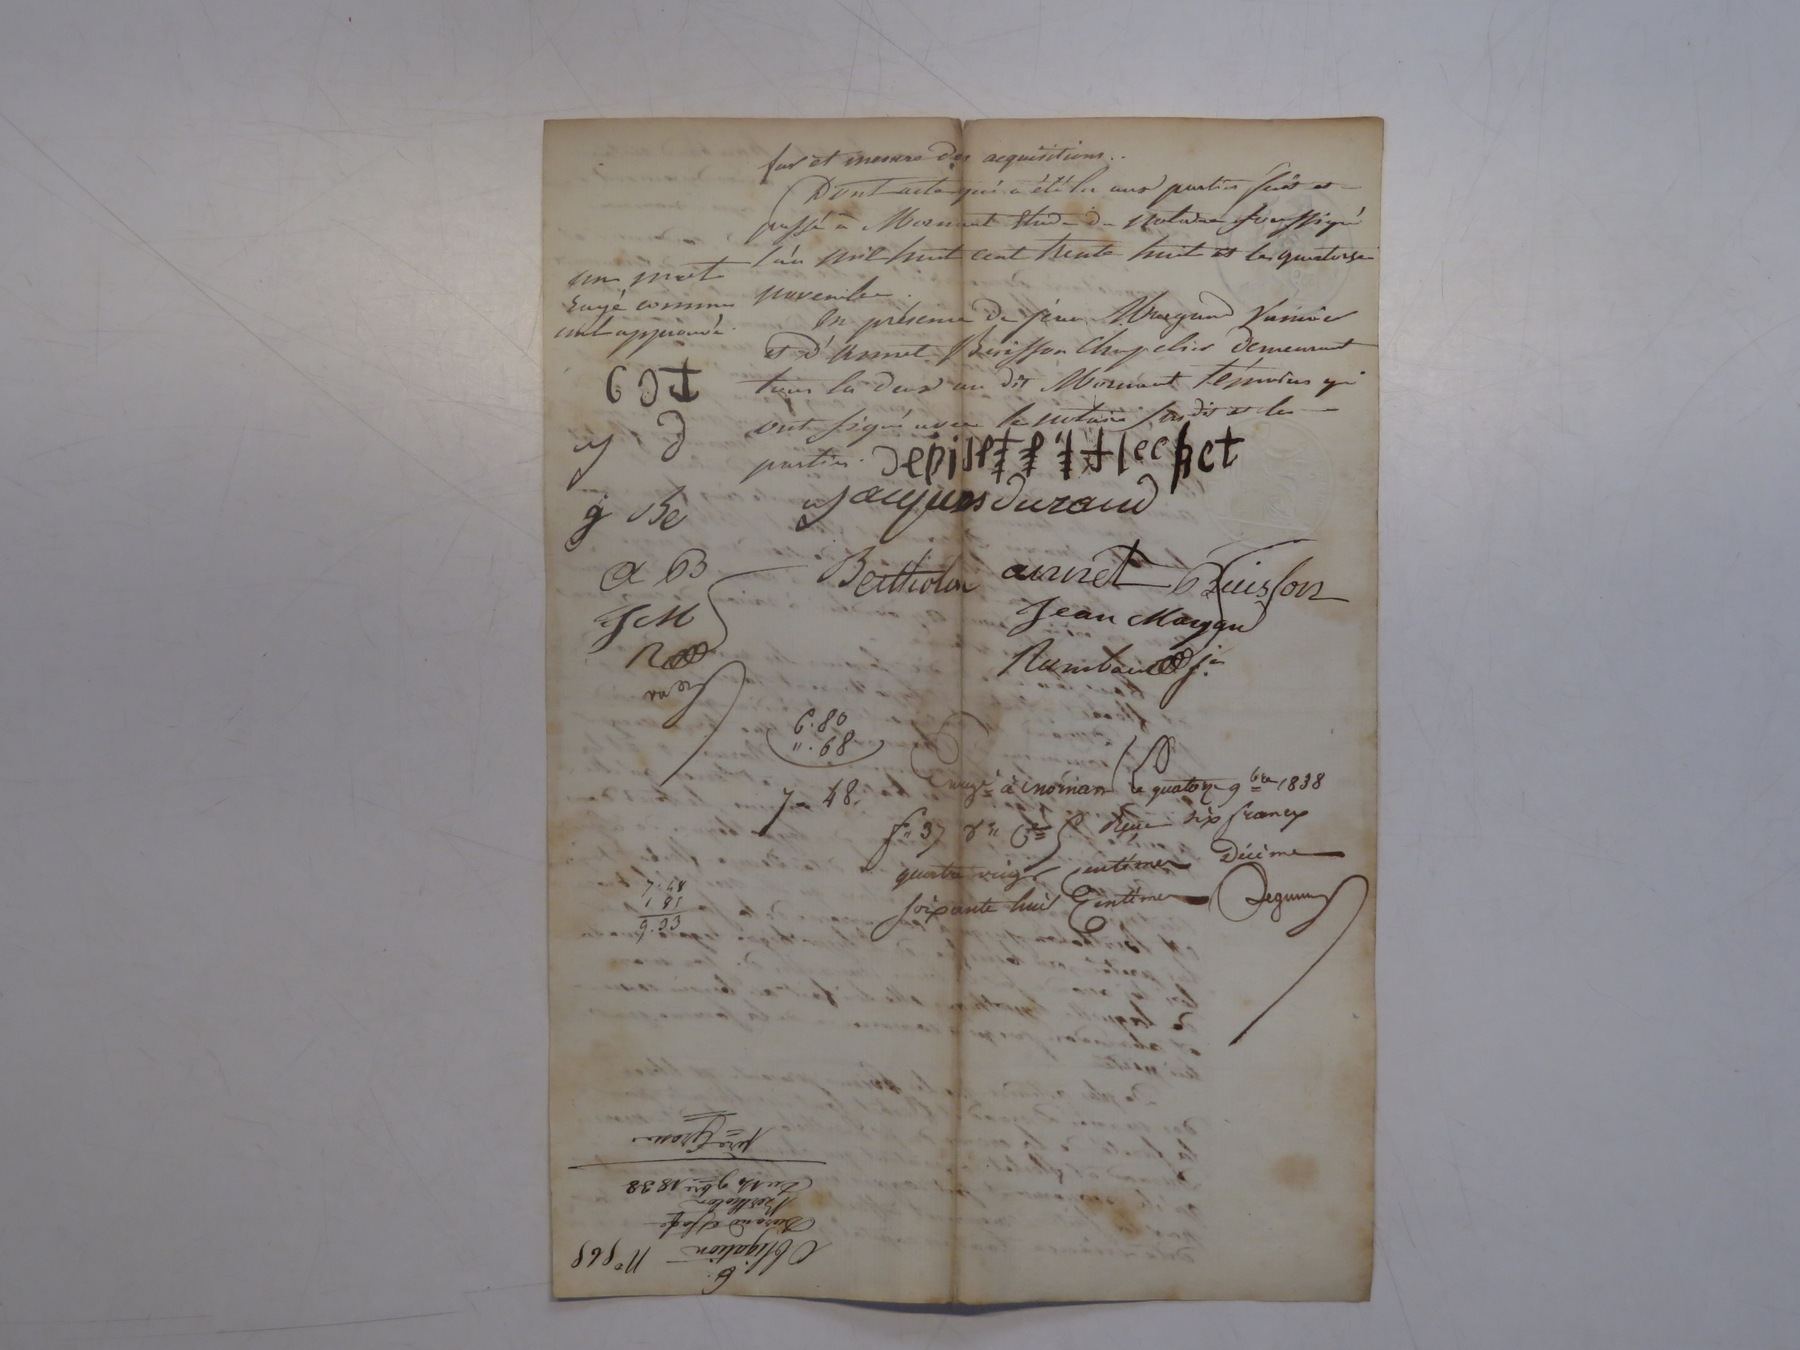 fur et mesure des acquisitions..
Dont acte qui a été lu aux parties fait et
passé à Mornant Etude du notaire soussigné
l'an mil huit cent trente huit et le quatorze
novembre.
En présence de Jean Margand
et d'Annet Buisson Chapelier demeurant
tous les deux au dit Mornant témoins qui
ont signé avec le notaire susdit et les
parties.
un mot
rayé comme
nul approuvé.
y d
g Be
a B
J M
Jacques durand
Bertholon
annet Buisson
Jean Margand
Rambaud
6.80
".68
7 " 48.
à Mornant le quatorze 9bre 1838
f° 37 Reçu six francs
quatre vingt centimes Décime
soixante huit Centimes
7.48
1 85
9.33
N° 868
Obligation
Durand
Bertholon
Du 14 9bre 1838